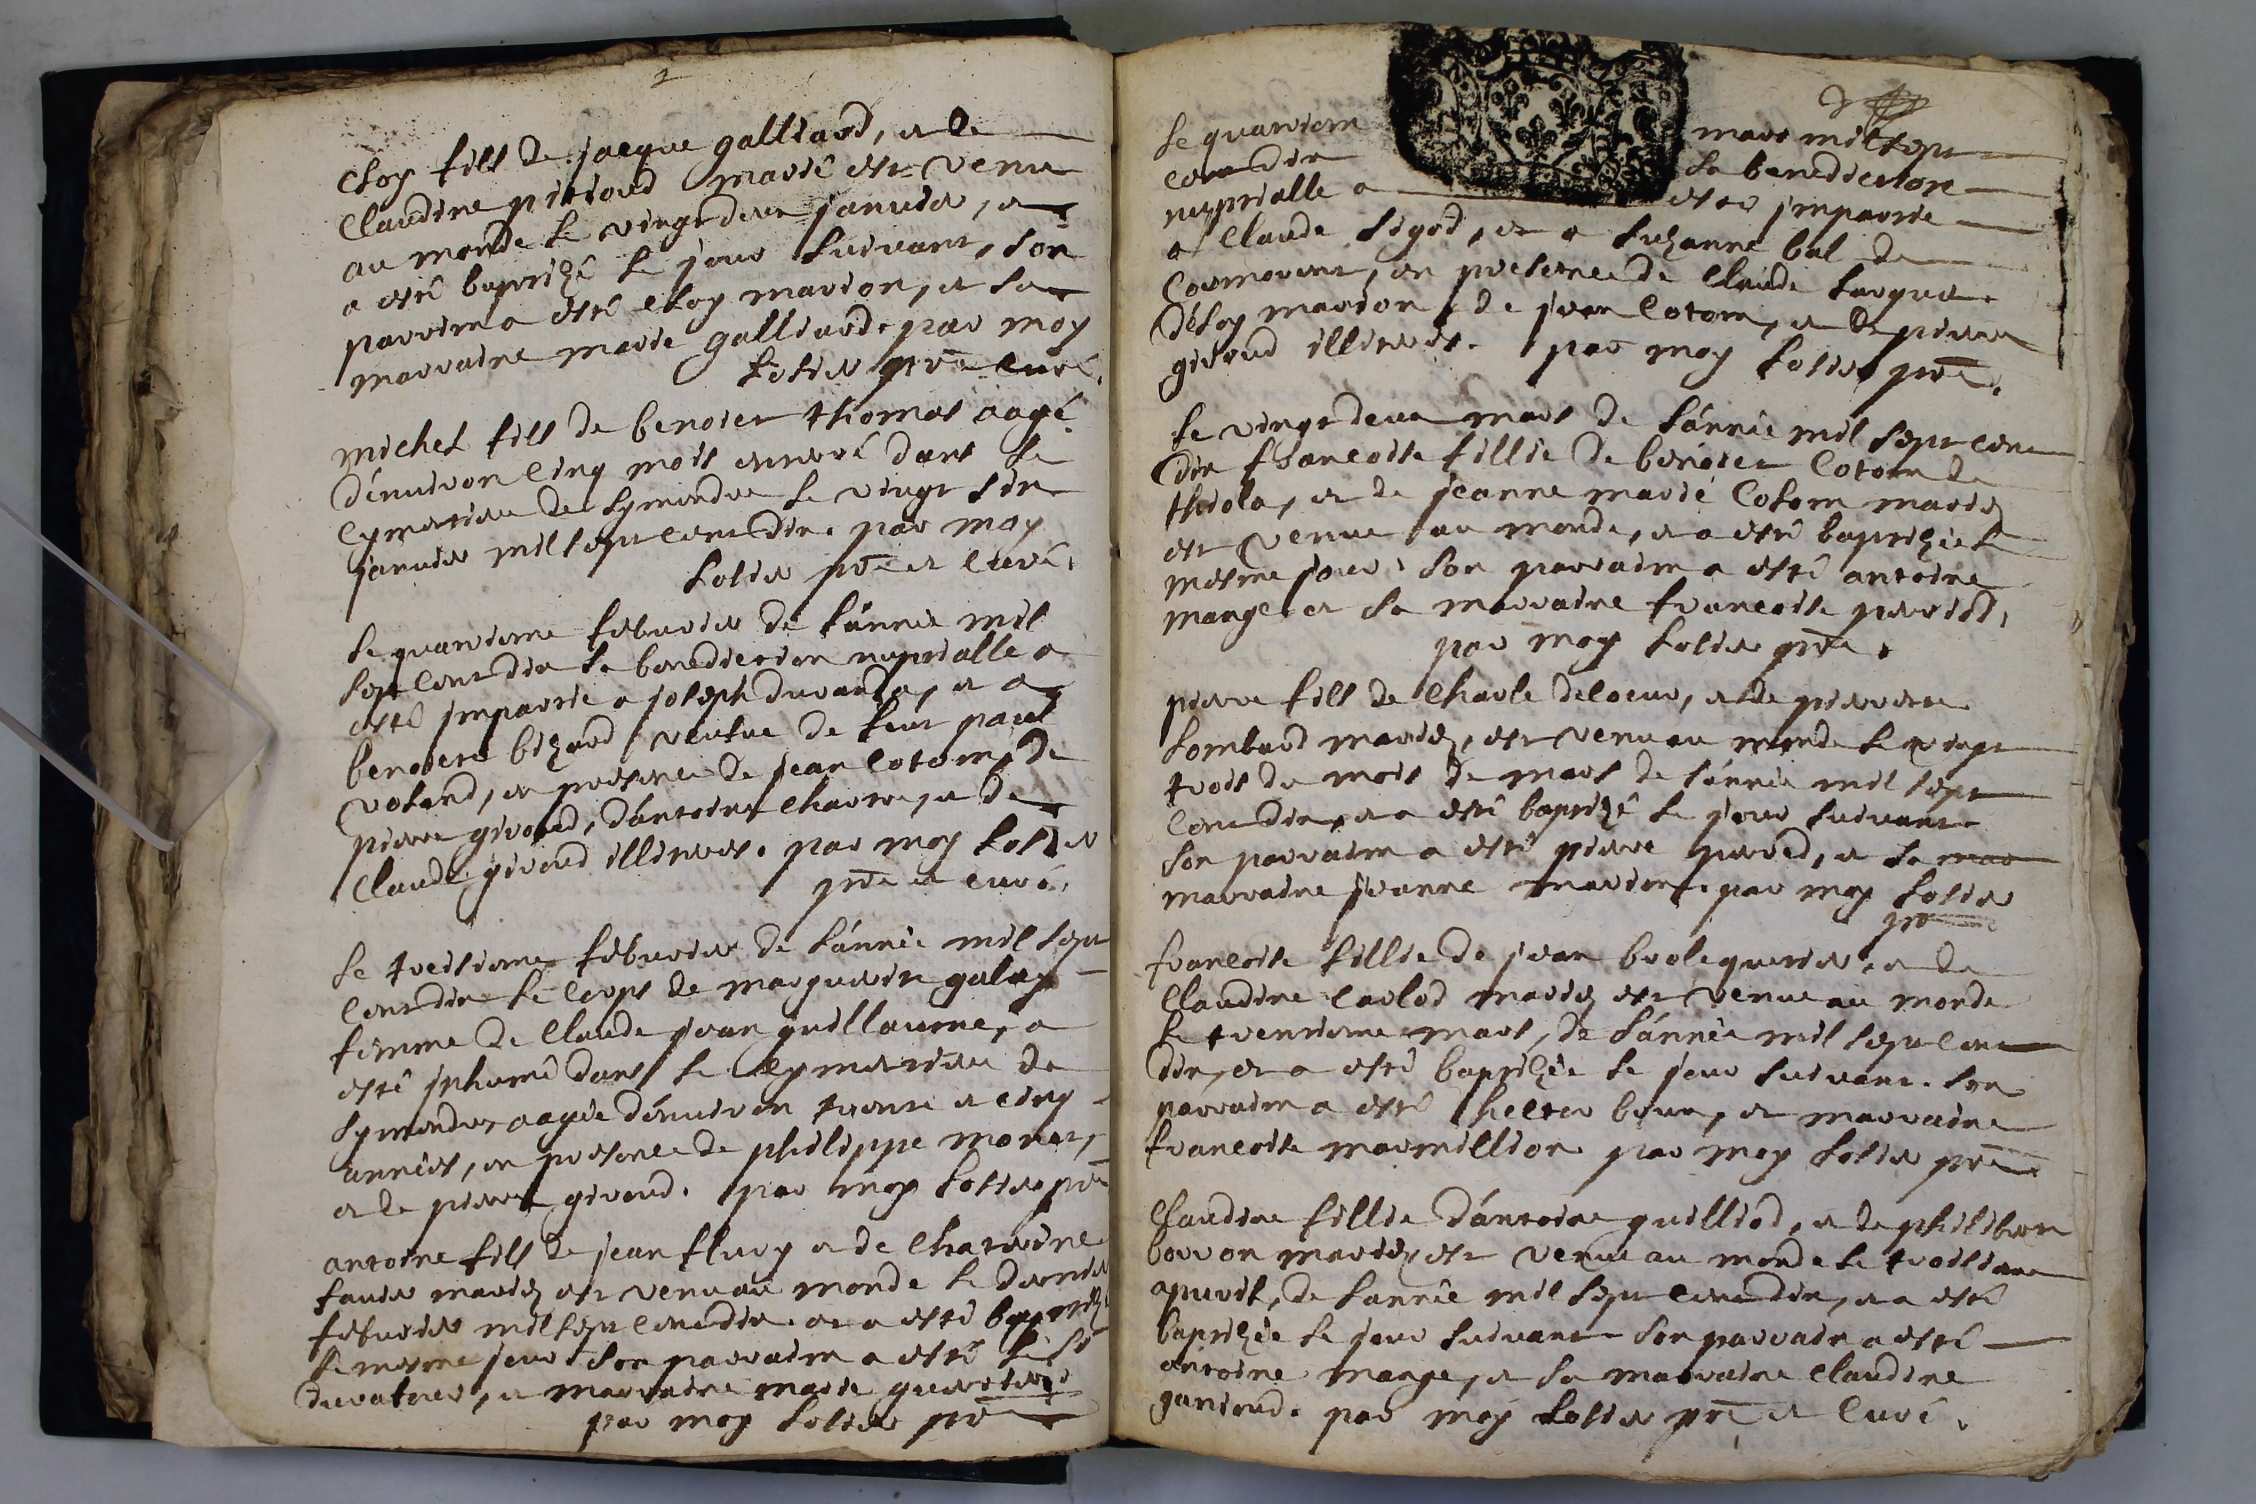 2
eloy fils de jacque galliard, et de
Claudine pittioud mariés est venu
au monde le vingt deux janvier, et
a esté baptizé le jour suivant, son
parrain a esté eloy marion, et sa
marraine marie galliard. par moy
Solier pre curé.
michel fils de benoiet thomas aagé
d'environ cinq mois enterré dans le
cymetiere de symandre le vingt six
janvier mil sept cent dix. par moy
Solier pre et curé.
Le quatrieme febvrier de l'année mil
sept cent dix la benediction nuptialle a
esté impartie a joseph durand, et a
benoiete bizard veufve de feut paul
volland, en presence de jean cotom, de
pierre giroud, d'antoine charve, et de
Claude giroud illiterés. par moy Solier
pre et curé.
Le treisieme febvrier de l'année mil sept
cent dix le corps de marguerite galay
femme de Claude jean guillaume, a
esté inhumé dans le cymetiere de
symandre, aagée d'environ trente et cinq
années, en presence de philippe monet,
et de pierre giroud. par moy Solier pre
antoine fils de jean flury et de Chaterine
favier mariez est venu au monde le dernier
febvrier mil sept cent dix. et a esté baptizé
le mesme jour son parrain a esté le sr
duvatner, et marraine marie
par moy Solier pre
Le quatriem mars mil sept
cent dix la benediction
nuptialle a esté impartie
a Claude sigod, et a suzanne bal de
Cormorent, en presence de Claude
d'eloy marion, de jean cotom, et de pierre
giroud illiterés. par moy Solier pre.
Le vingt deux mars de l'année mil sept cent
dix francoise fillie de benoiet Cotom de
thiola, et de jeanne marie Cotom mariez
est venue au monde, et a esté baptizée le
mesme jour. son parrain a esté antoine
mange et sa marraine francoise
par moy Solier pre.
pierre fils de Charle delacur, et de pierrette
Lombard mariez, est venu au monde le vingt
trois du mois de mars de l'année mil sept
cent dix, et a esté baptizé le jour suivant
son parrain a esté pierre pered, et sa mar
marraine jeanne marion. par moy Solier
pre
francoise fillie de jean et de
Claudine Carlod mariez est venue au monde
le trentieme mars, de l'année mil sept cent
dix, et a esté baptizée le jour suivant. son
parrain a esté hector beum, et marraine
francoise marmillion par moy Solier pre.
Claudine fillie d'antoine guilliod, et de philiberte
borron mariez est venue au monde le troisieme
apvril, de l'année mil sept cent dix, et a esté
baptizée le jour suivant son parrain a esté
antoine mange, et sa marraine Claudine
par moy Solier pre et curé.